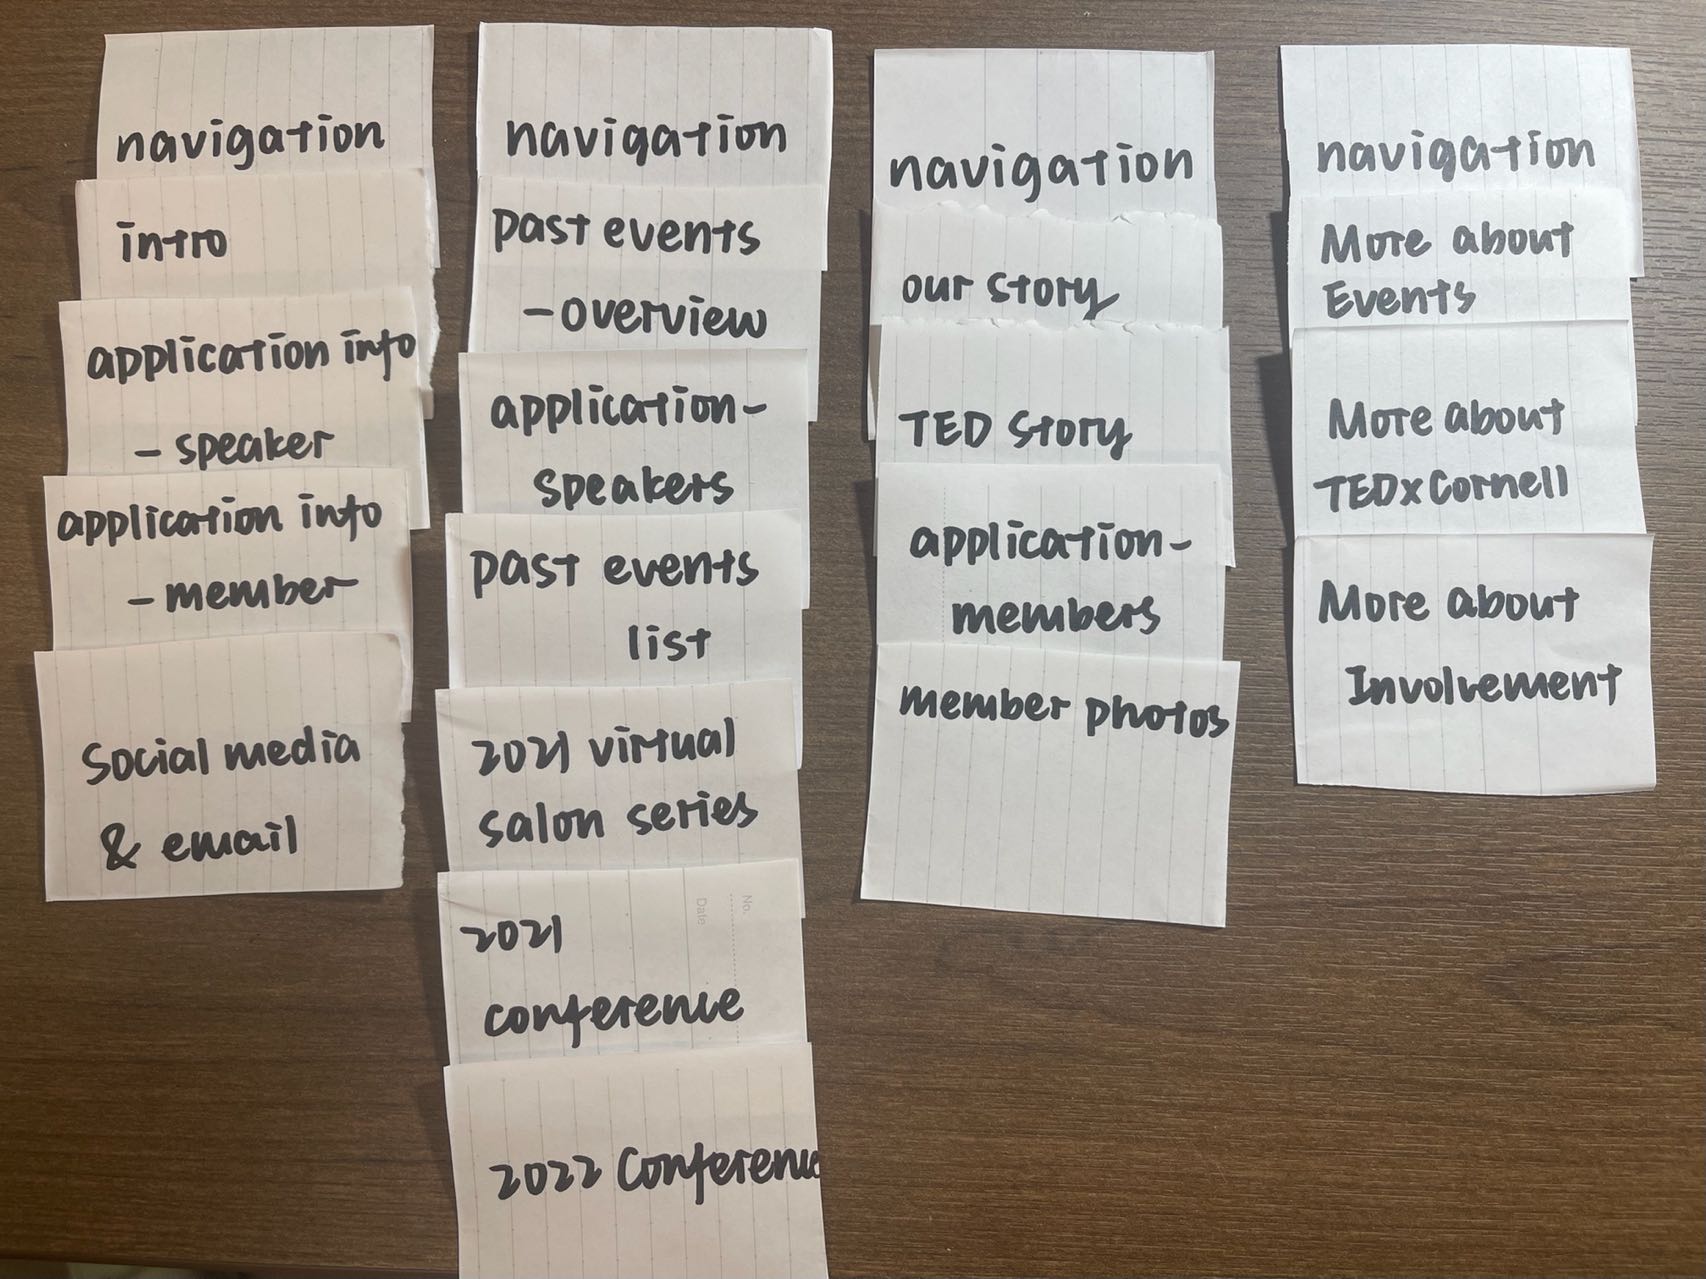 navigation
intro
application info
- speaker
application info
- member
Social media
& email
navigation
past events
- overview
application-
speakers
past events
list
2021 virtual
salon series
No.
Date
2021
conference
2022 Conference
navigation
our story
TED Story
application-
members
member photos
navigation
More about
Events
More about
TEDxCornell
More about
Involvement